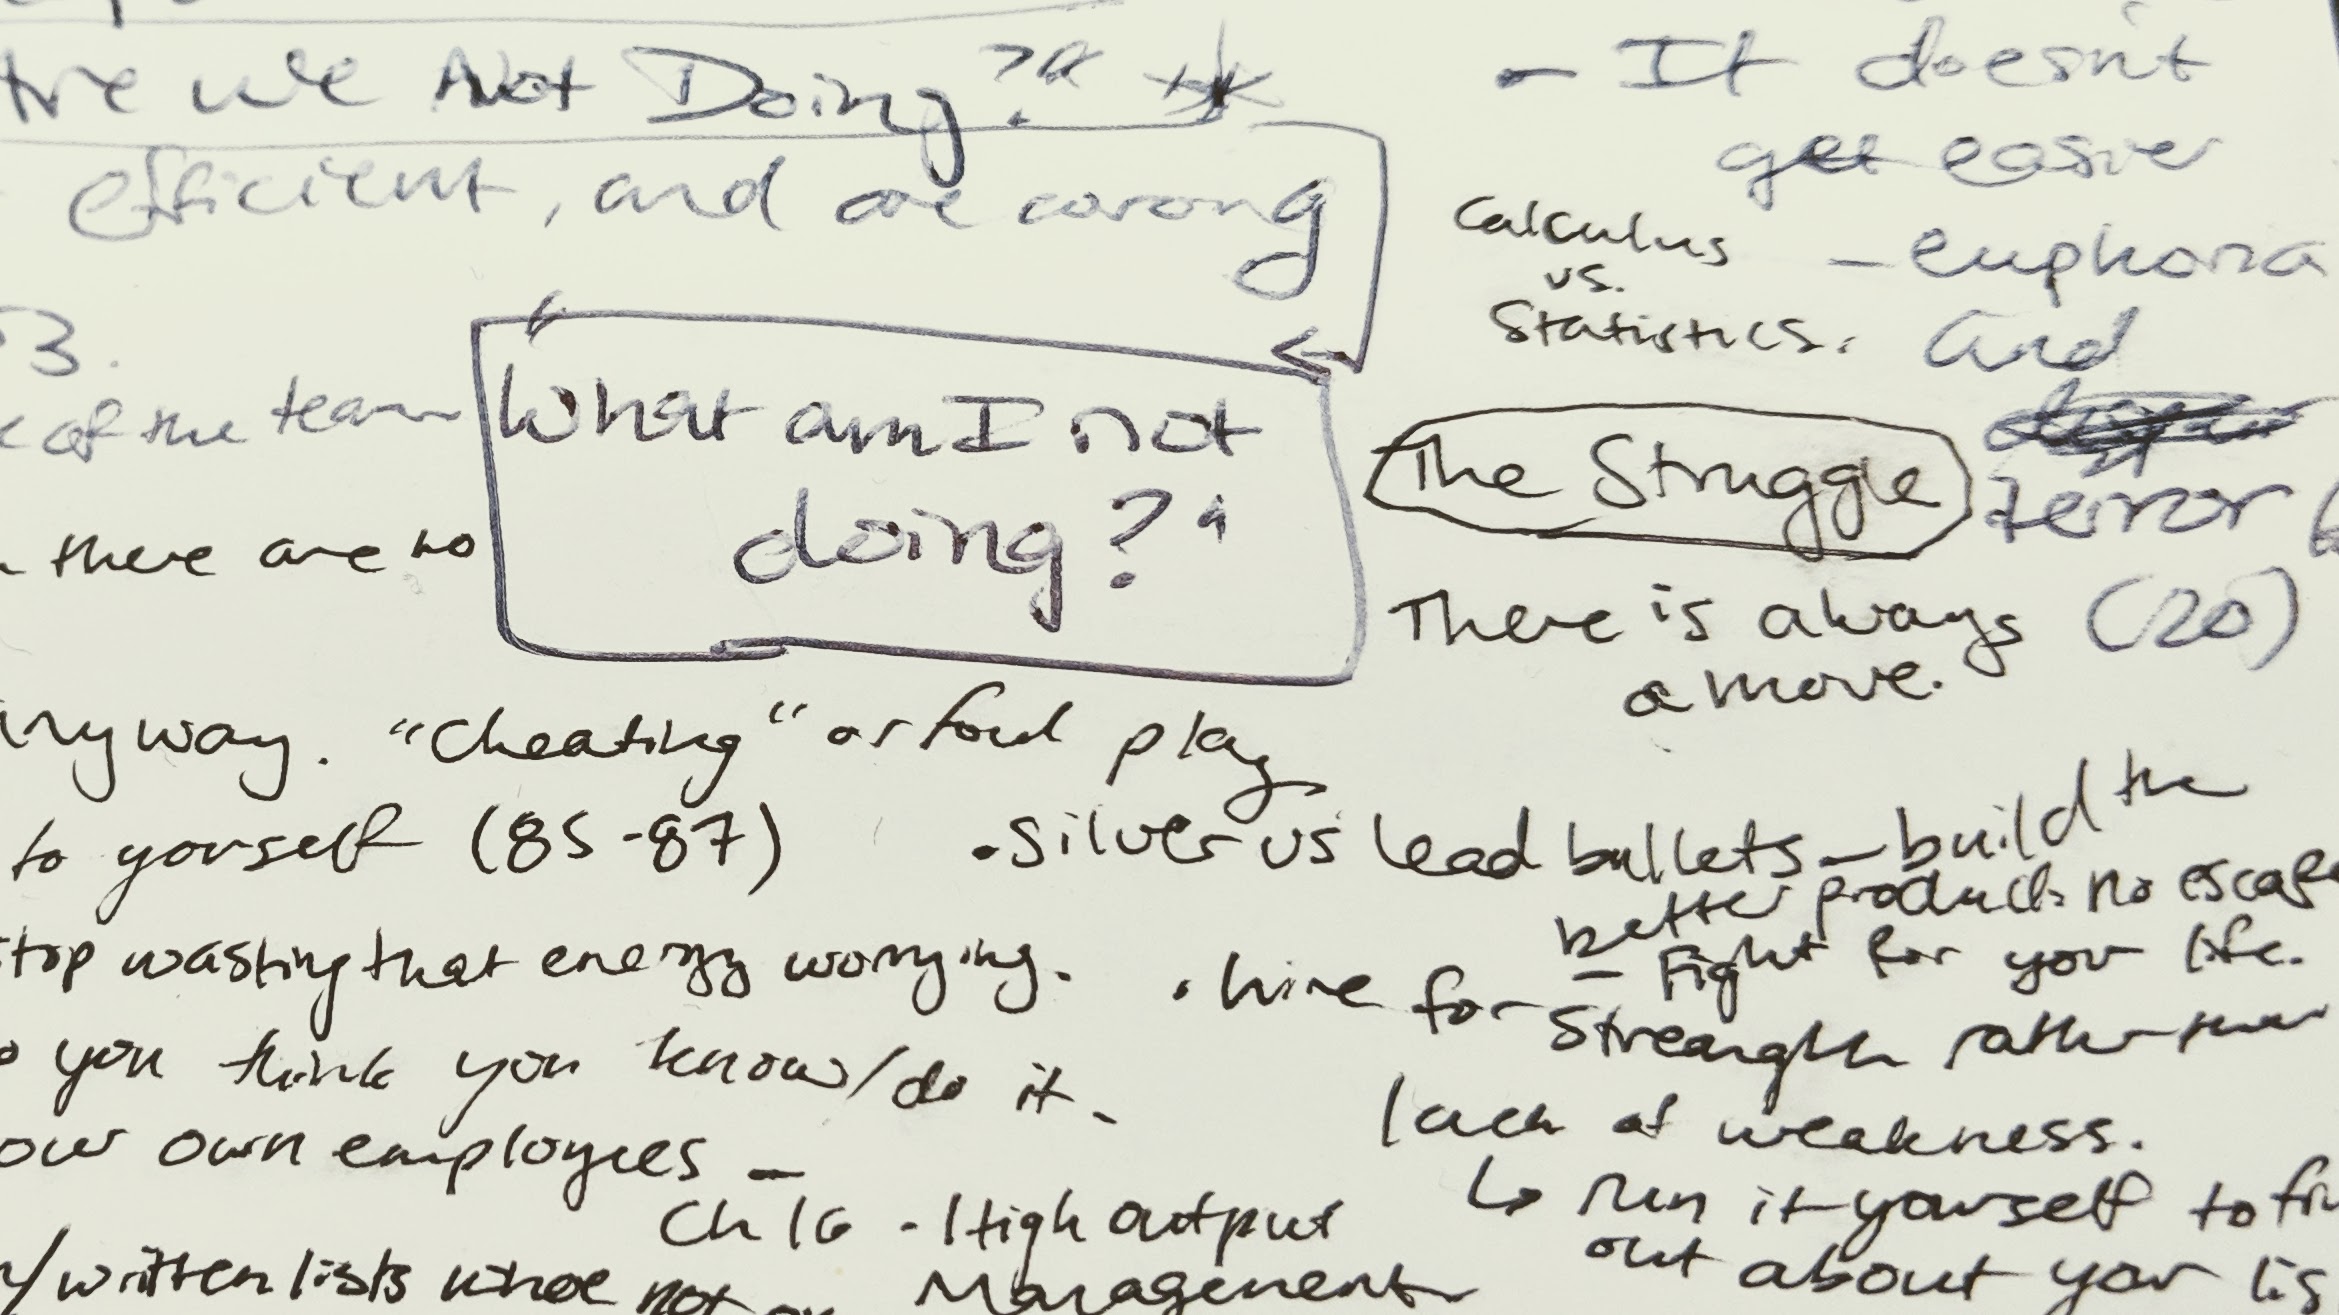 Are we Not Doing?"
efficient, and are wrong
3.
of the team
"What am I not
doing?"
there are no
- It doesn't
get easier
- euphoria
and
terror
(20)
Calculus
vs.
Statistics.
The Struggle
There is always
a move.
anyway. "Cheating" or foul play
to yourself (85-87)
stop wasting that energy worrying.
you think you know/do it.
our own employees -
Ch 16 - High output
Management
/written lists
not
• Silver vs lead bullets - build the
better product. no escape
- Fight for your life.
• hire for strength rather than
lack of weakness.
↳ run it yourself to
out about your